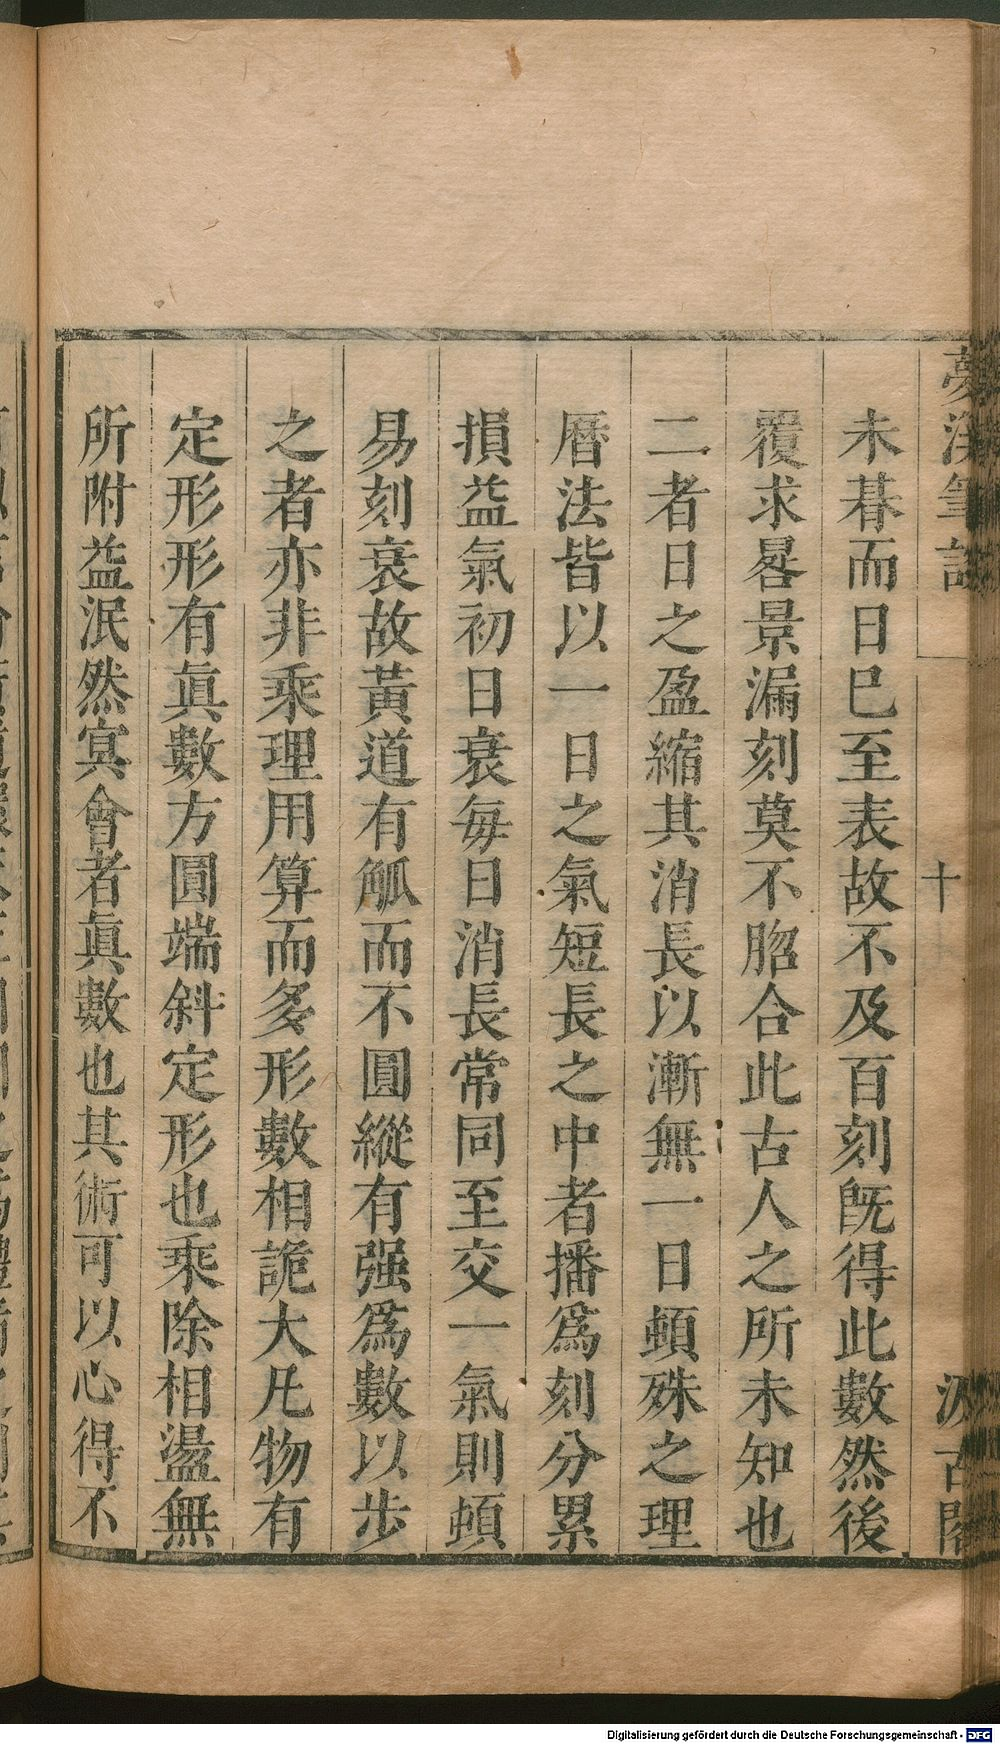 夢溪筆談
十
汲古閣
未朞而日巳至表故不及百刻旣得此數然後
覆求晷景漏刻莫不脗合此古人之所未知也
二者日之盈縮其消長以漸無一日頓殊之理
曆法皆以一日之氣短長之中者播爲刻分累
損益氣初日衰每日消長常同至交一氣則頓
易刻衰故黃道有觚而不圓縱有强爲數以步
之者亦非乘理用算而多形數相詭大凡物有
定形形有眞數方圓端斜定形也乘除相盪無
所附益泯然冥會者眞數也其術可以心得不
Digitalisierung gefördert durch die Deutsche Forschungsgemeinschaft - DFG